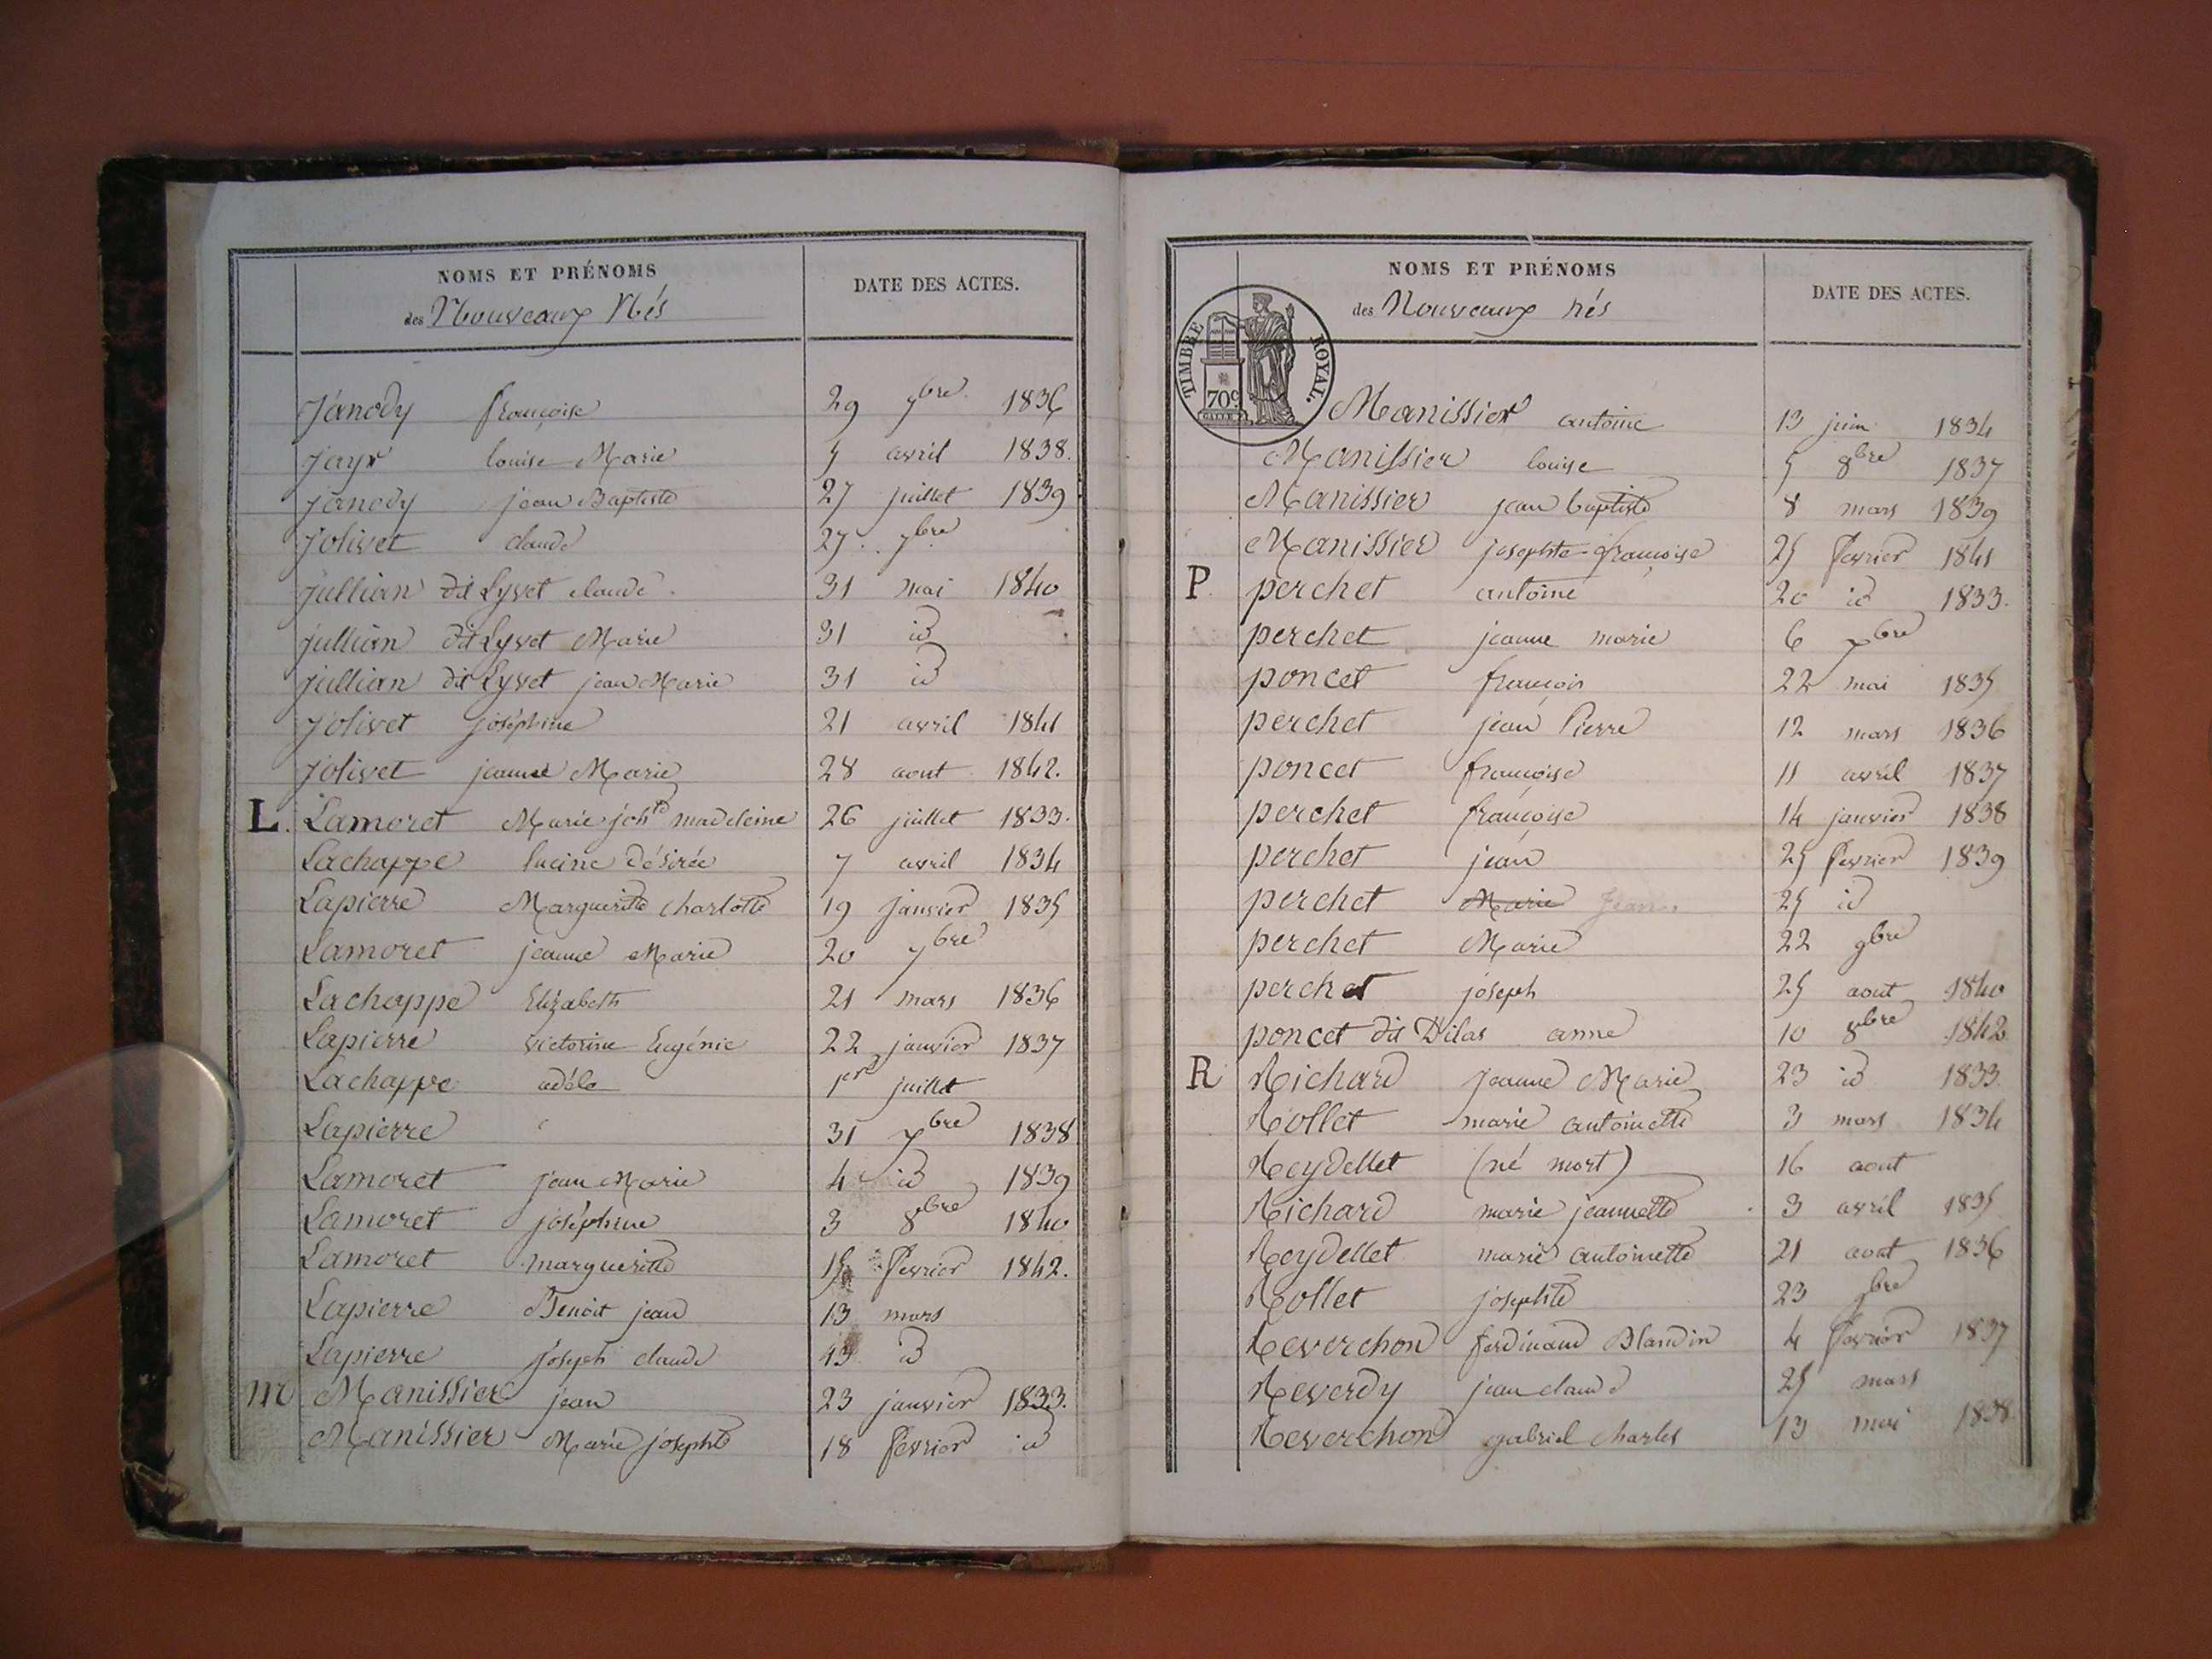 NOMS ET PRÉNOMS
des Nouveaux Nés
DATE DES ACTES.
Janody françoise 29 7bre 1836
jayr louise Marie 5 avril 1838.
janody jean Baptiste 27 juillet 1839
jolivet claude 27 7bre
jullian dit Lyvet claude 31 mai 1840
jullian dit Lyvet Marie 31 id
jullian dit Lyvet jean Marie 31 id
jolivet joséphine 21 avril 1841
jolivet jeanne Marie 28 aout 1842.
L. Lamoret Marie jphte madeleine 26 juillet 1833.
Lachappe lucine désirée 7 avril 1834
Lapierre Margueritte charlotte 19 janvier 1835
Lamoret jeanne Marie 20 7bre
Lachappe Elizabeth 21 mars 1836
Lapierre victorine Eugénie 22 janvier 1837
Lachappe adéle 1er juillet
Lapierre 31 xbre 1838
Lamoret jean Marie 4 id 1839
Lamoret joséphine 3 8bre 1840
Lamoret margueritte 15 fevrier 1842.
Lapierre Benoit jean 13 mars
Lapierre joseph claude 13 id
M Manissier jean 23 janvier 1833.
Manissier Marie josephte 18 fevrier id
NOMS ET PRÉNOMS
des Nouveaux nés
DATE DES ACTES.
TIMBRE ROYAL.
70c.
Manissier antoine 13 juin 1834
Manissier louise 5 8bre 1837
Manissier jean baptiste 8 mars 1839
Manissier josephte françoise 25 fevrier 1841
P. perchet antoine 20 id 1833.
perchet jeanne marie 6 xbre
poncet françois 22 mai 1835
perchet jean Pierre 12 mars 1836
poncet françoise 11 avril 1837
perchet françoise 14 janvier 1838
perchet jean 25 fevrier 1839
perchet Marie Jean 25 id
perchet Marie 22 9bre
perchet joseph 25 aout 1840
poncet dit Dilas anne 10 8bre 1842
R Richard jeanne Marie 23 id 1833.
Rollet marie antoinette 3 mars 1834
Reydellet (né mort) 16 aout
Richard marie jeannette 3 avril 1835
Reydellet marie antoinette 21 aout 1836
Rollet josephte 23 9bre
Reverchon ferdinand Blandin 4 fevrier 1837
Reverdy jean claude 25 mars
Reverchon gabriel charles 13 mai 1838.